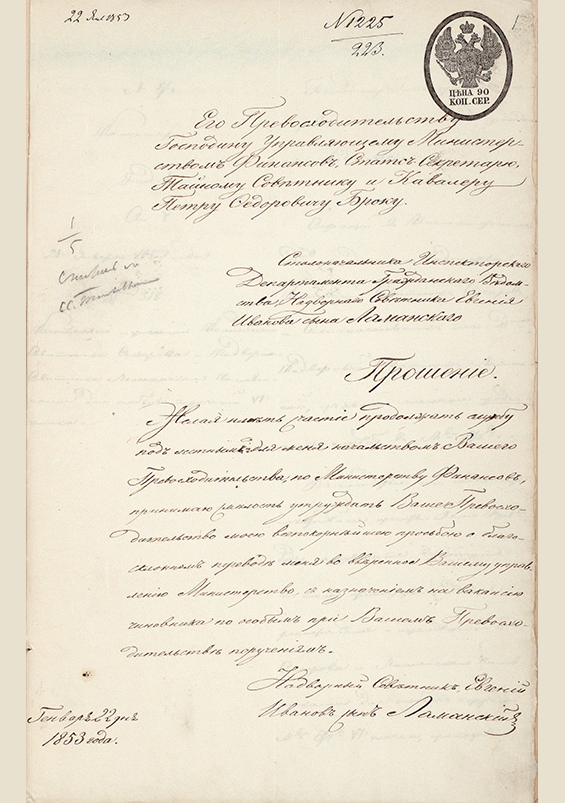 22 Янв 1853
№ 1225
223.
ЦѢНА 90
КОП. СЕР.
Его Превосходительству
Господину Управляющему Министер-
ствомъ Финансовъ, Статсъ-Секретарю,
Тайному Совѣтнику и Кавалеру
Петру Ѳедоровичу Броку.
1
5
Столоначальника Инспекторскаго
Департамента Гражданскаго Вѣдом-
ства, Надворнаго Совѣтника Евгенія
Иванова сына Ламанскаго
Прошеніе.
Желая имѣть счастіе продолжать службу
подъ лестнымъ для меня начальствомъ Вашего
Превосходительства, по Министерству Финансовъ,
принимаю смѣлость утруждать Ваше Превосхо-
дительство моею всепокорнѣйшею просьбою о благо-
склонномъ переводѣ меня во ввѣренное Вашему управ-
ленію Министерство, съ назначеніемъ на вакансію
чиновника по особымъ при Вашемъ Превосхо-
дительствѣ порученіямъ.
Надворный Совѣтникъ, Евгеній
Ивановъ сынъ Ламанскій
Генваря 22 дня
1853 года.